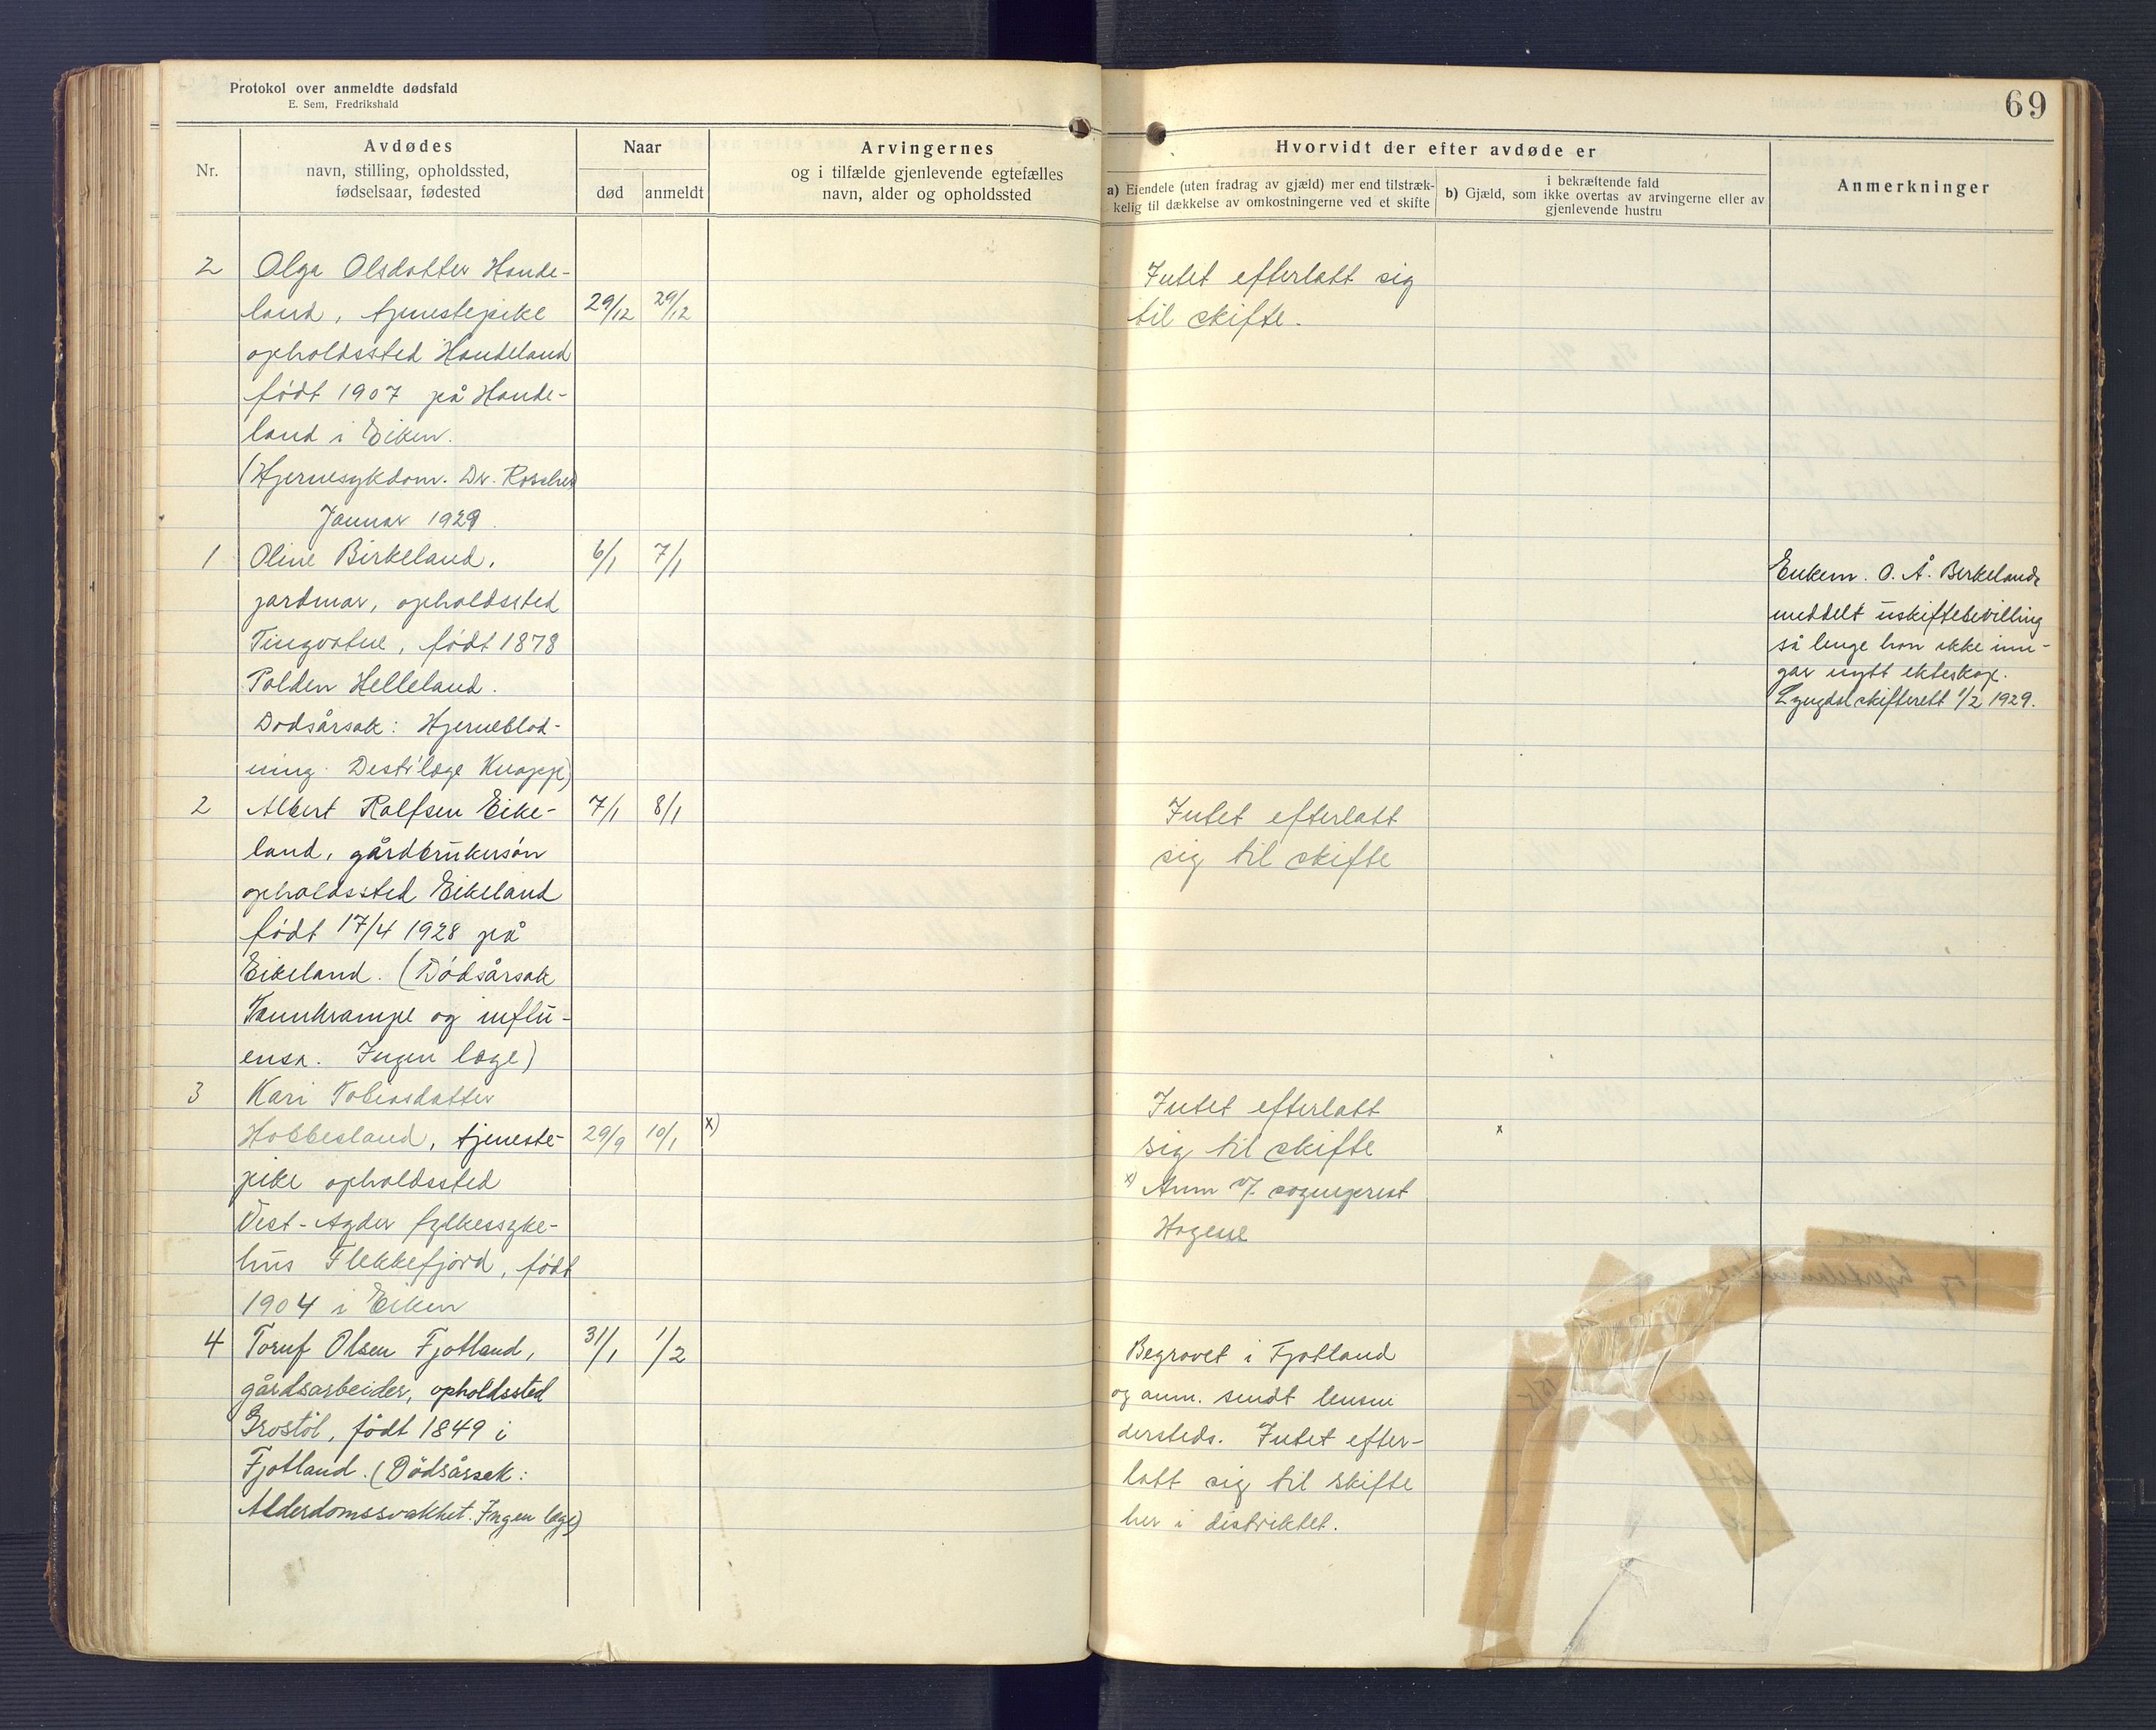 Protokol over anmeldte dødsfald
E. Sem, Fredrikshald
Nr.
Avdødes
navn, stilling, opholdssted,
fødselsaar, fødested
Naar
død
anmeldt
Arvingernes
og i tilfælde gjenlevende egtefælles
navn, alder og opholdssted
2 Olga Olsdatter Hande-
land, tjenestepike 29/12 29/12
opholdssted Handeland
født 1907 på Hande-
land i Eiken.
(Hjernesykdom. Dr. Roscher)
Januar 1929.
1 Oline Birkeland, 6/1 7/1
gardmar, opholdssted
Tingvatne, født 1878
Polden Helleland.
Dødsårsak: Hjerneblød-
ning. Distr. læge Knapp)
2 Albert Rolfsen Eike- 7/1 8/1
land, gårdbrukersøn
opholdssted Eikeland
født 17/4 1928 på
Eikeland. (Dødsårsak
Tannkrampe og influ-
ensa. Ingen læge)
3 Kari Tobiasdatter
Hobbesland, tjeneste- 29/9 10/1 x)
pike opholdssted
Vest-Agder fylkessyke-
hus Flekkefjord, født
1904 i Eiken
4 Toruf Olsen Fjotland, 31/1 1/2
gårdsarbeider, opholdssted
Grostøl, født 1849 i
Fjotland. (Dødsårsak:
Alderdomssvakhet. Ingen læge)
69
Hvorvidt der efter avdøde er
a) Eiendele (uten fradrag av gjæld) mer end tilstræk-
kelig til dækkelse av omkostningerne ved et skifte
i bekræftende fald
b) Gjæld, som ikke overtas av arvingerne eller av
gjenlevende hustru
Anmerkninger
Intet efterlatt sig
til skifte.
Enkem. O. Å. Birkeland
meddelt uskiftebevilling
så lenge han ikke inn-
går nytt ekteskap.
Lyngdal skifterett 1/2 1929.
Intet efterlatt
sig til skifte
Intet efterlatt
sig til skifte x
x) Anm v/ sogneprest
Hagene
Begravet i Fjotland
og anm. sendt lensm
dersteds. Intet efter-
latt sig til skifte
her i distriktet.